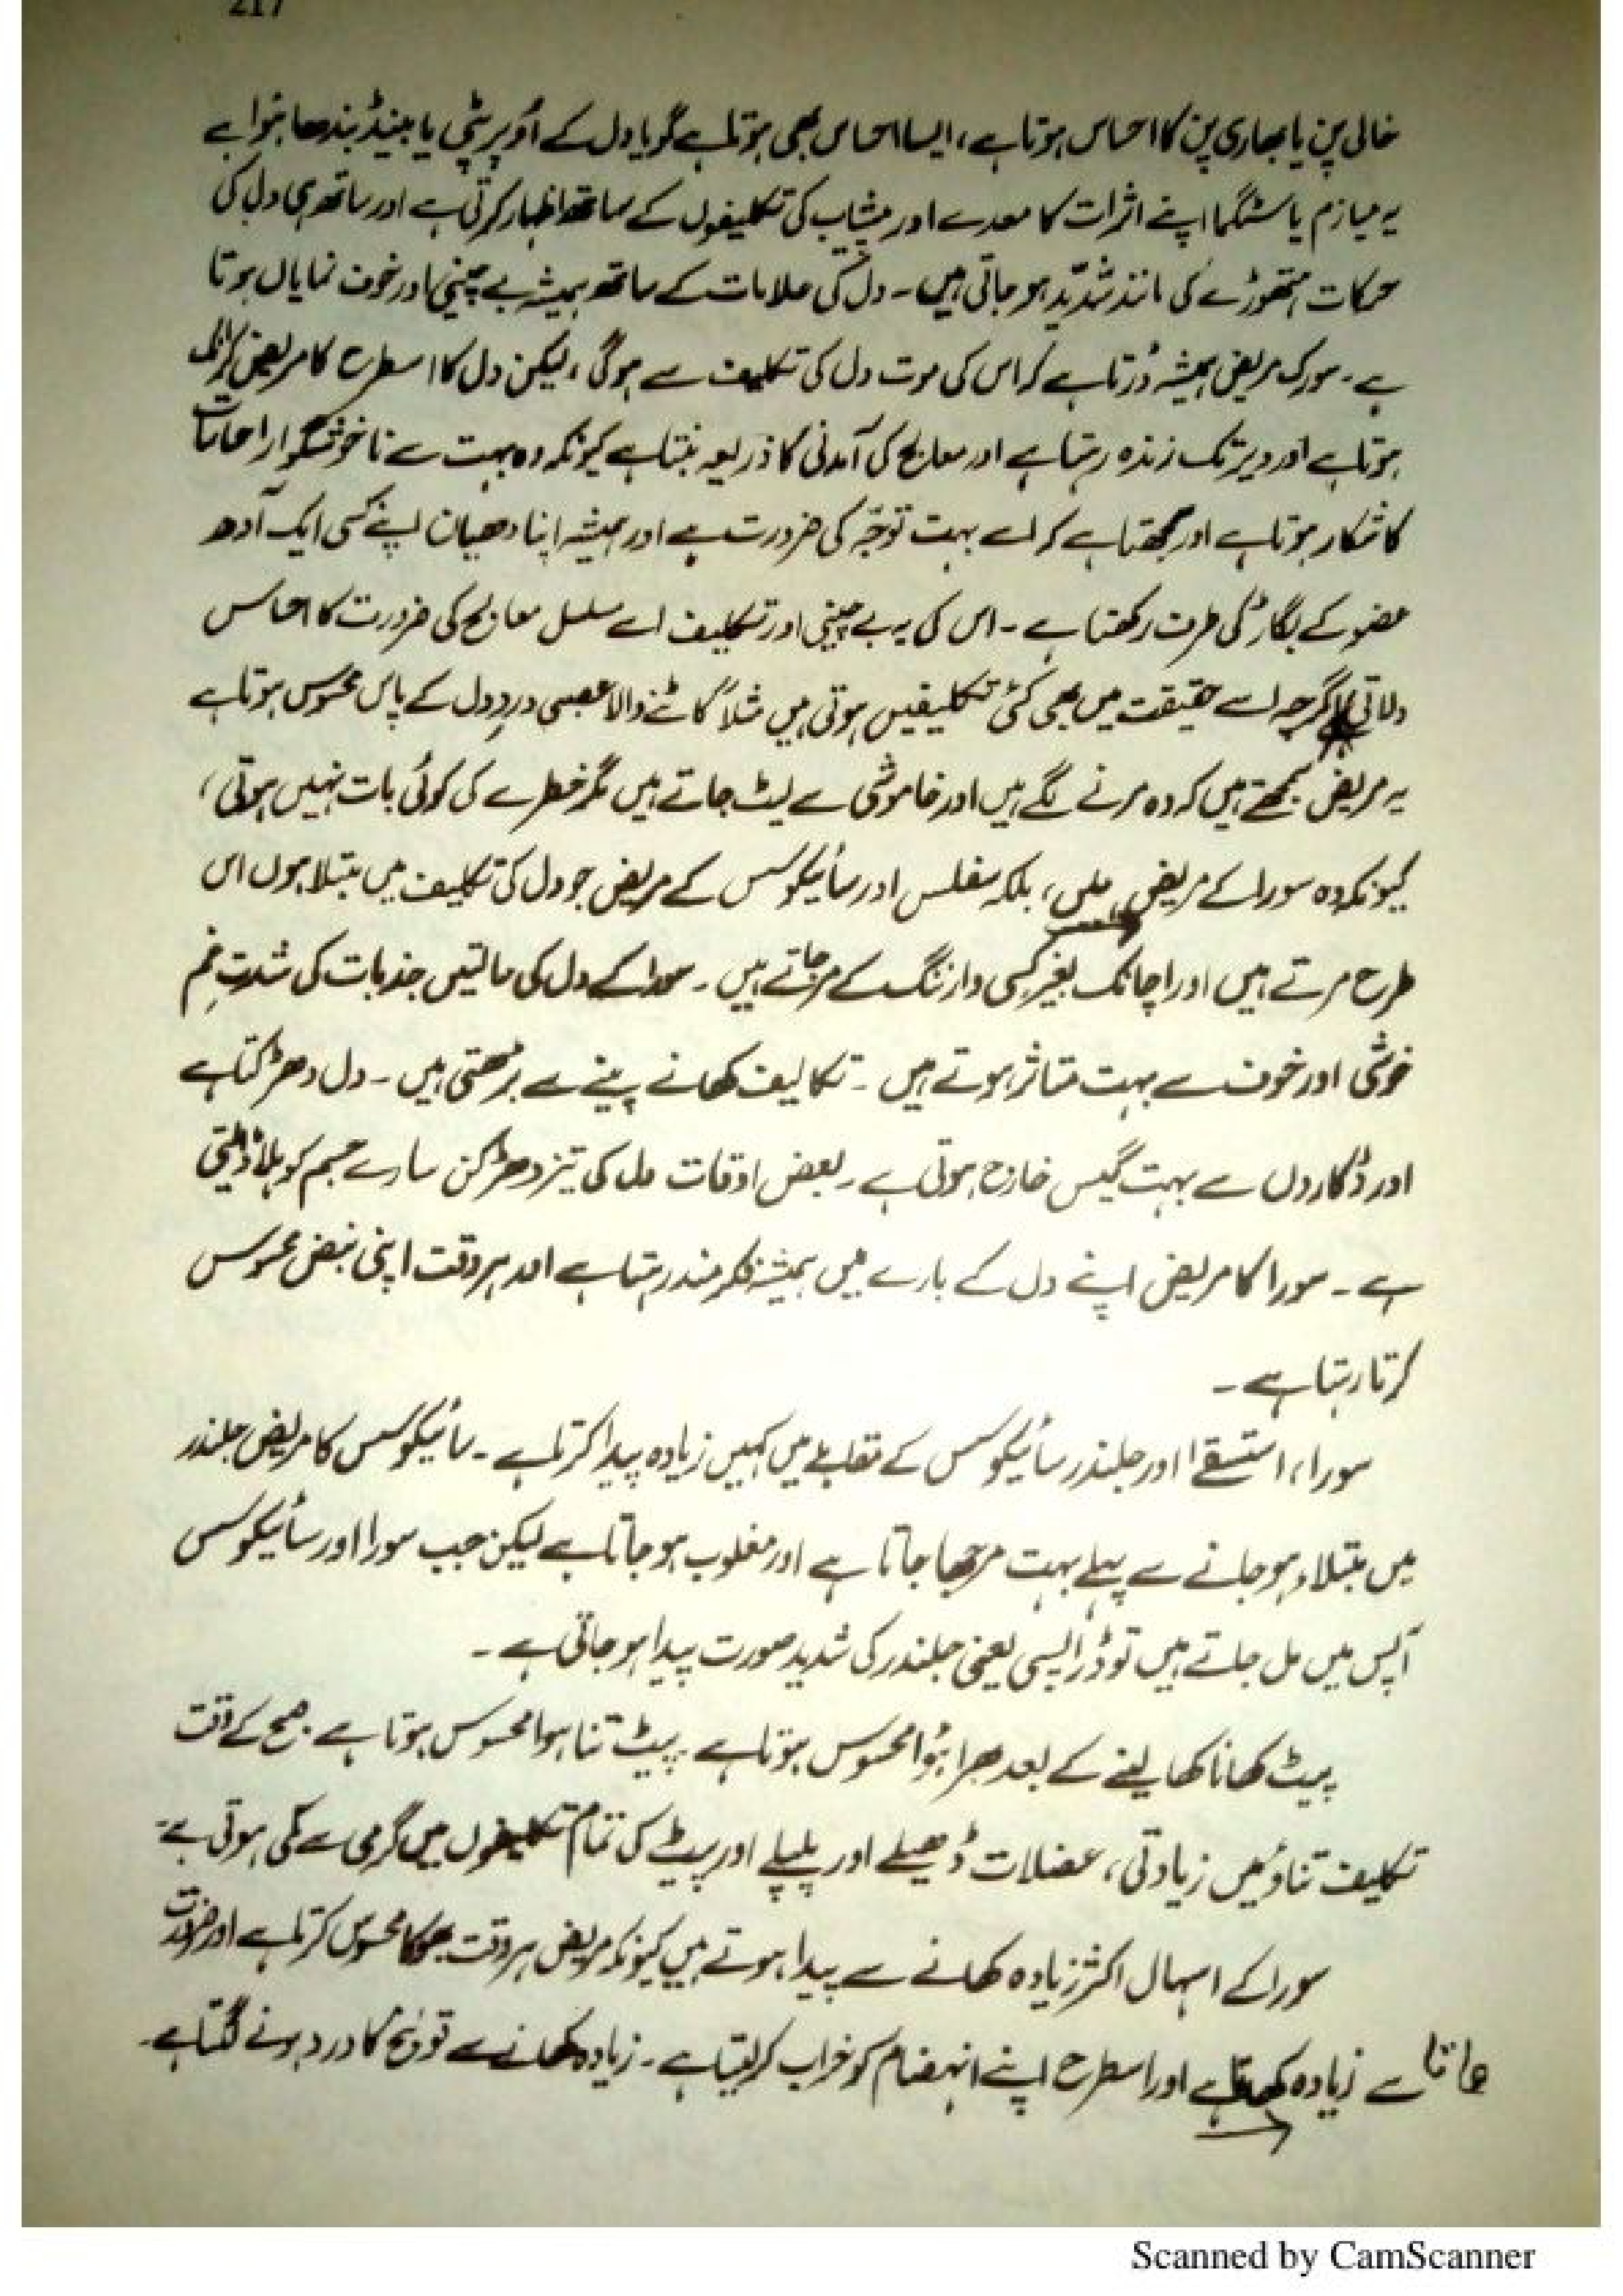 217
خالی پن یا بھاری پن کا احساس ہوتا ہے، ایسا احساس بھی ہوتا ہے گویا دل کے اُوپر پٹی یا بینڈ بندھا ہوا ہے
یہ میازم یا سٹگما اپنے اثرات کا معدے اور پیشاب کی تکلیفوں کے ساتھ اظہار کرتی ہے اور ساتھ ہی دل کی
حرکات ہتھوڑے کی مانند شدید ہو جاتی ہیں۔ دل کی علامات کے ساتھ ہمیشہ بے چینی اور خوف نمایاں ہوتا
ہے۔ سورک مریض ہمیشہ ڈرتا ہے کہ اس کی موت دل کی تکلیف سے ہوگی، لیکن دل کا اسطرح کا مریض کرانک
ہوتا ہے اور دیر تک زندہ رہتا ہے اور معالج کی آمدنی کا ذریعہ بنتا ہے کیونکہ وہ بہت سے ناخوشگوار احساسات
کا شکار ہوتا ہے اور سمجھتا ہے کہ اسے بہت توجّہ کی ضرورت ہے اور ہمیشہ اپنا دھیان اپنے کسی ایک آدھ
عضو کے بگاڑ کی طرف رکھتا ہے۔ اس کی یہ بے چینی اور تکلیف اسے مسلسل معالج کی ضرورت کا احساس
دلاتی ہے اگرچہ اسے حقیقت میں بھی کئی تکلیفیں ہوتی ہیں مثلاً کاٹنے والا عصبی درد دل کے پاس محسوس ہوتا ہے
یہ مریض سمجھتے ہیں کہ وہ مرنے لگے ہیں اور خاموشی سے لیٹ جاتے ہیں مگر خطرے کی کوئی بات نہیں ہوتی،
کیونکہ وہ سورا کے مریض ہیں، بلکہ سفلس اور سائیکوسس کے مریض جو دل کی تکلیف میں مبتلا ہوں اس
طرح مرتے ہیں اور اچانک بغیر کسی وارننگ کے مر جاتے ہیں۔ سورا کے دل کی حالتیں جذبات کی شدت غم
خوشی اور خوف سے بہت متاثر ہوتے ہیں۔ تکالیف کھانے پینے سے بڑھتی ہیں۔ دل دھڑکتا ہے
اور ڈکاروں سے بہت گیس خارج ہوتی ہے۔ بعض اوقات دل کی تیز دھڑکن سارے جسم کو ہلا ڈالتی
ہے۔ سورا کا مریض اپنے دل کے بارے میں ہمیشہ فکر مند رہتا ہے اور ہر وقت اپنی نبض محسوس
کرتا رہتا ہے۔
سورا، استسقا اور جلندر سائیکوسس کے مقابلے میں کہیں زیادہ پیدا کرتا ہے۔ سائیکوسس کا مریض جلندر
میں مبتلاء ہو جانے سے پہلے بہت مرجھا جاتا ہے اور مغلوب ہو جاتا ہے لیکن جب سورا اور سائیکوسس
آپس میں مل جاتے ہیں تو ڈراپسی یعنی جلندر کی شدید صورت پیدا ہو جاتی ہے۔
پیٹ کھانا کھا لینے کے بعد بھرا ہُوا محسوس ہوتا ہے۔ پیٹ تنا ہوا محسوس ہوتا ہے۔ صبح کے وقت
تکلیف تناؤ میں زیادتی، عضلات ڈھیلے اور پلپلے اور پیٹ کی تمام تکلیفوں میں گرمی سے کمی ہوتی ہے۔
سورا کے اسہال اکثر زیادہ کھانے سے پیدا ہوتے ہیں کیونکہ مریض ہر وقت بھوکا محسوس کرتا ہے اور ضرورت
سے زیادہ کھا جاتا ہے اور اسطرح اپنے انہضام کو خراب کر لیتا ہے۔ زیادہ کھانے سے قولنج کا درد ہونے لگتا ہے۔
Scanned by CamScanner